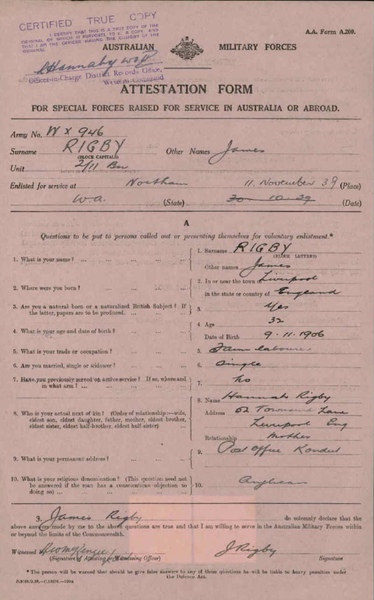 CERTIFIED TRUE COPY
A.A. Form A.200.
AUSTRALIAN MILITARY FORCES
Officer-in-Charge District Records Office,
ATTESTATION FORM
FOR SPECIAL FORCES RAISED FOR SERVICE IN AUSTRALIA OR ABROAD.
Army No. WX 946
Surname RIGBY Other Names James
(BLOCK CAPITALS)
Unit 2/11 Bn
Enlisted for service at Northam 11 November 39 (Place)
W.A. (State) 30-10-39 (Date)
A
Questions to be put to persons called out or presenting themselves for voluntary enlistment.*
1. What is your name? 1. Surname RIGBY
(BLOCK LETTERS)
Other names James
2. Where were you born? 2. In or near the town Liverpool
in the state or country of England
3. Are you a natural born or a naturalized British Subject? If the letter, papers are to be produced. 3. Yes
4. What is your age and date of birth? 4. Age 32
Date of Birth 9-11-1906
5. What is your trade or occupation? 5. Farm labourer
6. Are you married, single or widower? 6. Single
7. Have you previously served on active service? If so, where and in what arm? 7. No
8. Who is your actual next of kin? (Order of relationship—wife, eldest son, eldest daughter, father, mother, eldest brother, eldest sister, eldest half-brother, eldest half-sister) 8. Name Hannah Rigby
Address 62 Lane
Liverpool Eng
Relationship Mother
9. What is your permanent address? 9. Post Office Kondut
10. What is your religious denomination? (This question need not be answered if the man has a conscientious objection to doing so) 10. Anglican
I, James Rigby do solemnly declare that the above answers made by me to the above questions are true and that I am willing to serve in the Australian Military Forces within or beyond the limits of the Commonwealth.
Witnessed by J Rigby
(Signature of Attesting or Witnessing Officer) Signature
*The person will be warned that should he give false answers to any of these questions he will be liable to heavy penalties under the Defence Act.